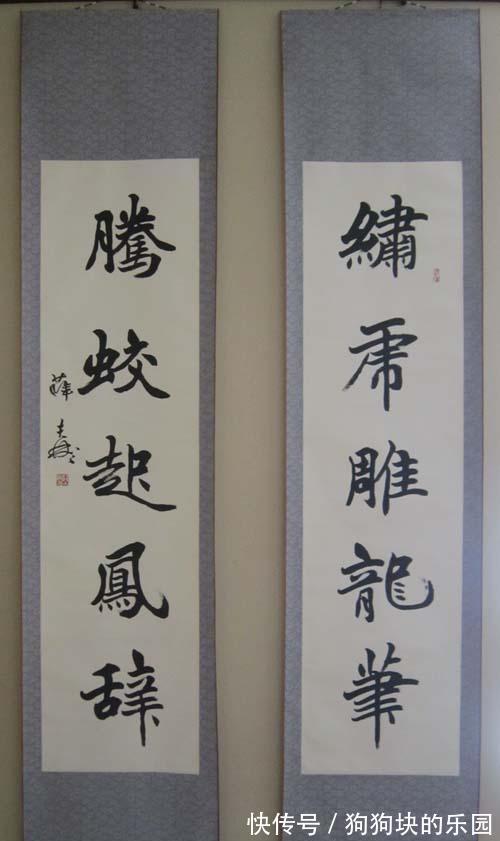 繡虎雕龍筆
騰蛟起鳳辭
薛
快传号/狗狗块的乐园